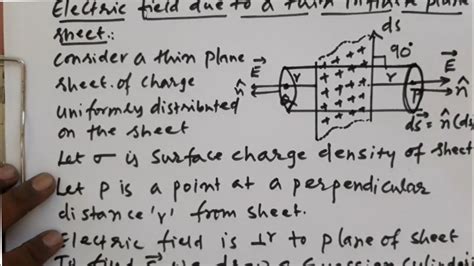 Electric field due to a thin infinite plane
sheet:
consider a thin plane
sheet of charge
uniformly distributed
on the sheet
ds
90°
E
n̂
r
r
P
E
n̂
ds = n̂(ds
Let σ is surface charge density of sheet
Let P is a point at a perpendicular
distance 'r' from sheet.
Electric field is ⊥r to plane of sheet
To find E we draw a Gaussian cylinder